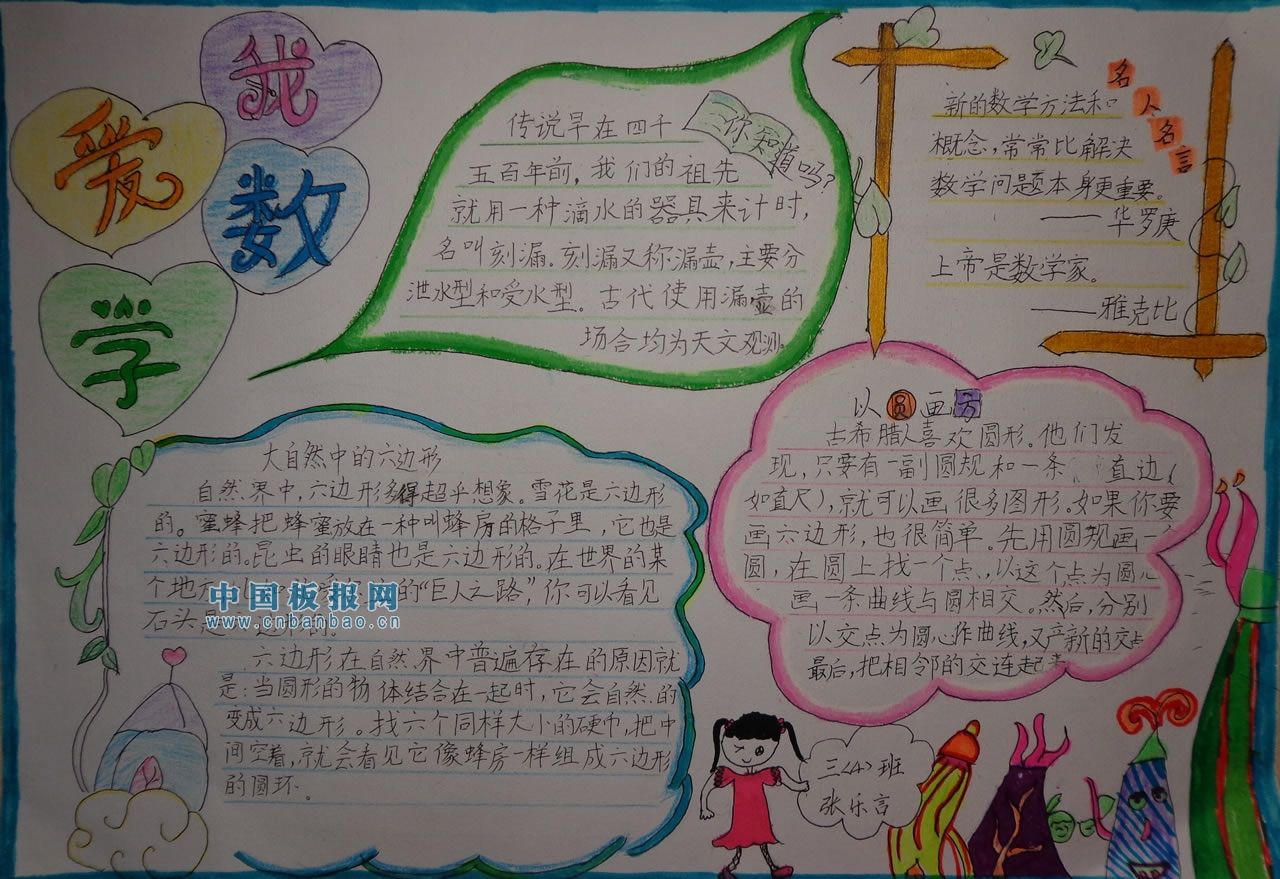 我
爱
数
学
你知道吗?
传说早在四千
五百年前,我们的祖先
就用一种滴水的器具来计时,
名叫刻漏。刻漏又称漏壶,主要分
泄水型和受水型。古代使用漏壶的
场合均为天文观测。
名人名言
新的数学方法和
概念,常常比解决
数学问题本身更重要。
——华罗庚
上帝是数学家。
——雅克比
大自然中的六边形
自然界中,六边形多得超乎想象。雪花是六边形
的。蜜蜂把蜂蜜放在一种叫蜂房的格子里,它也是
六边形的。昆虫的眼睛也是六边形的。在世界的某
个地方,的“巨人之路”,你可以看见
石头是
六边形在自然界中普遍存在的原因就
是:当圆形的物体结合在一起时,它会自然的
变成六边形。找六个同样大小的硬币,把中
间空着,就会看见它像蜂房一样组成六边形
的圆环。
以圆画方
古希腊人喜欢圆形。他们发
现,只要有一副圆规和一条直边(
如直尺),就可以画很多图形。如果你要
画六边形,也很简单。先用圆规画一个
圆,在圆上找一个点,以这个点为圆心
画一条曲线与圆相交。然后,分别
以交点为圆心作曲线,又产新的交点
最后,把相邻的交连起来
三〈4〉班
张乐言
中国板报网
www.cnbanbao.cn